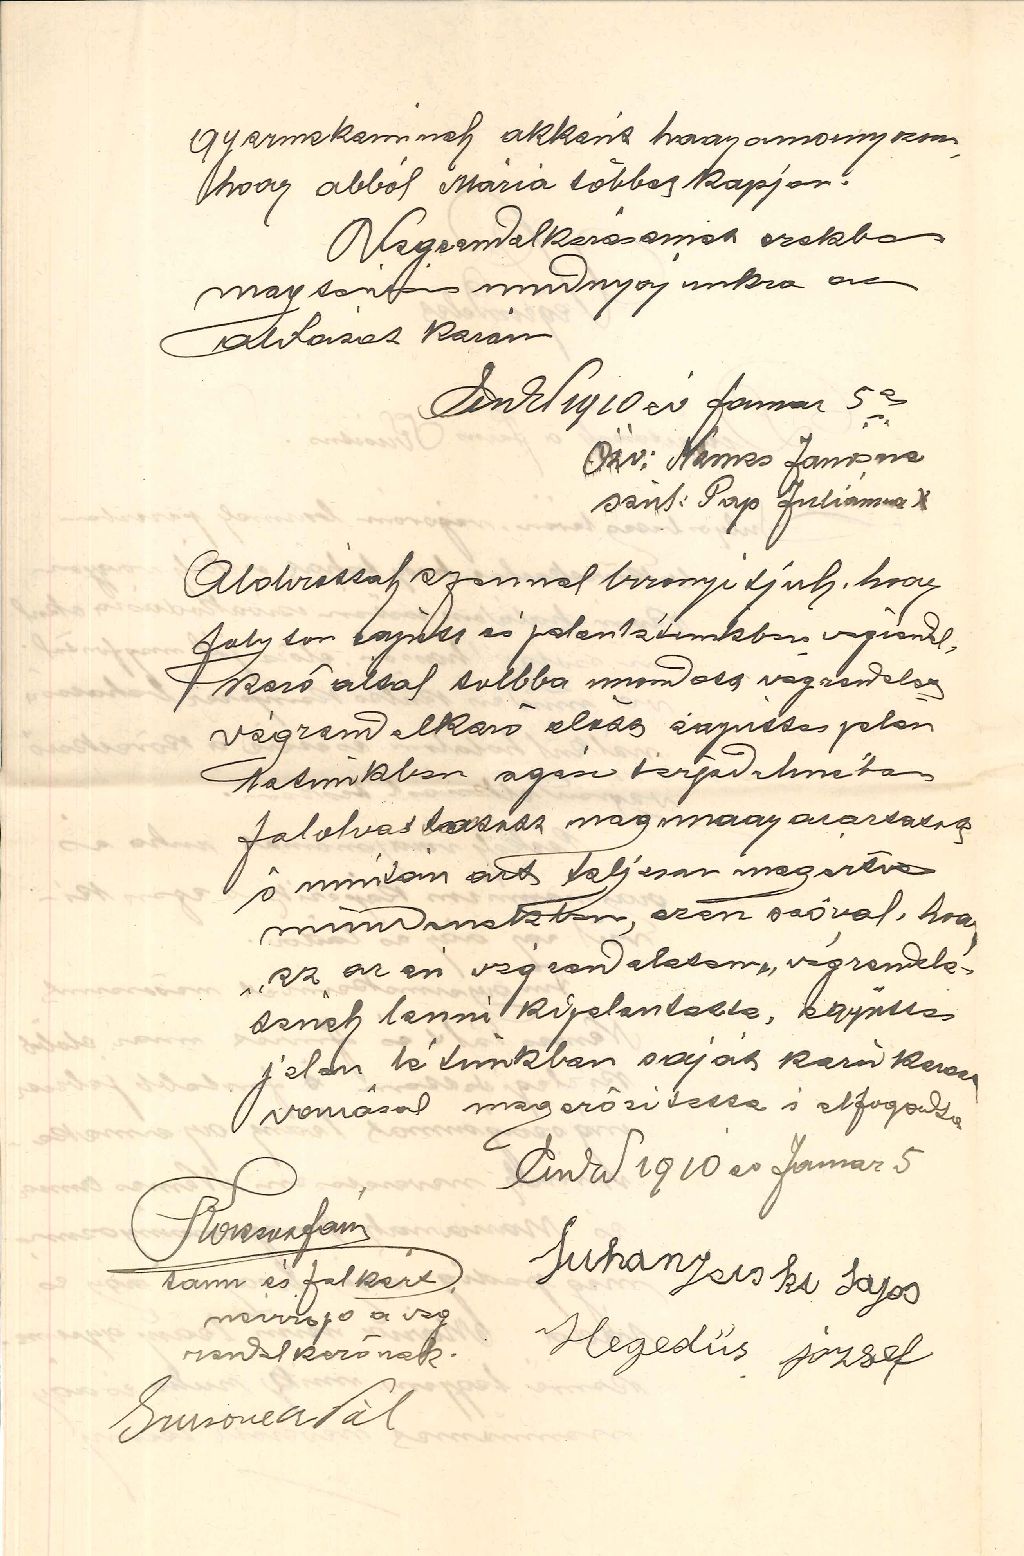 gyermekeimnek akként hagyományozom,
hogy abból Mária többet kapjon.
Végrendelkezésemet ezekbe
meg
aláirást kérem
1910 év Januar 5én
Özv: Nemes Jánosné
szül: Pap Juliánna X
Alólirottak ezennel bizonyitjuk, hogy
folyton együtt és jelenlétünkben végrendel,
kező által tollba mondott végrendelet
végrendelkező előtt együttes jelen
létünkben egész terjedelmében
felolvastatott megmagyaráztatott
ő miután azt teljesen megértve
mindenekben, ezen szóval, hogy
„ez az én végrendeletem„ végrendele-
tének lenni kijelentette, együttes
jelen létünkben saját kezü kereszt
vonásal megerősitette s elfogadta
1910 év Januar 5
tanu és felkért
névirója a vég
rendelkezőnek.
Lajos
Hegedüs józsef
Pál